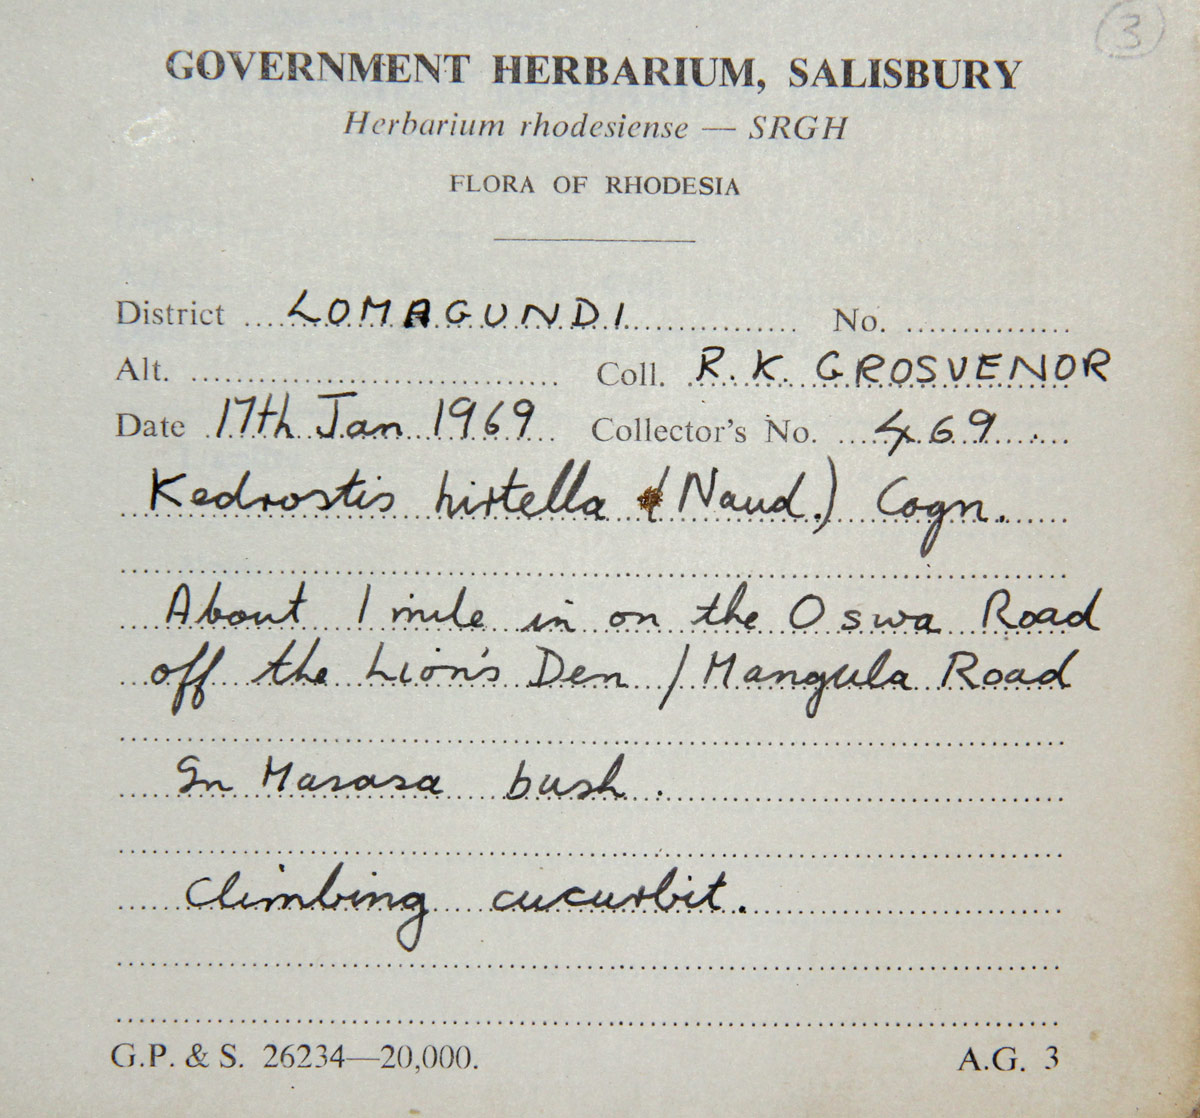 3
GOVERNMENT HERBARIUM, SALISBURY
Herbarium rhodesiense — SRGH
FLORA OF RHODESIA
District LOMAGUNDI No.
Alt. Coll. R. K. GROSVENOR
Date 17th Jan 1969 Collector's No. 469
Kedrostis hirtella (Naud.) Cogn.
About 1 mile in on the Oswa Road
off the Lion's Den / Mangula Road
In Masasa bush.
Climbing cucurbit.
G.P. & S. 26234—20,000. A.G. 3